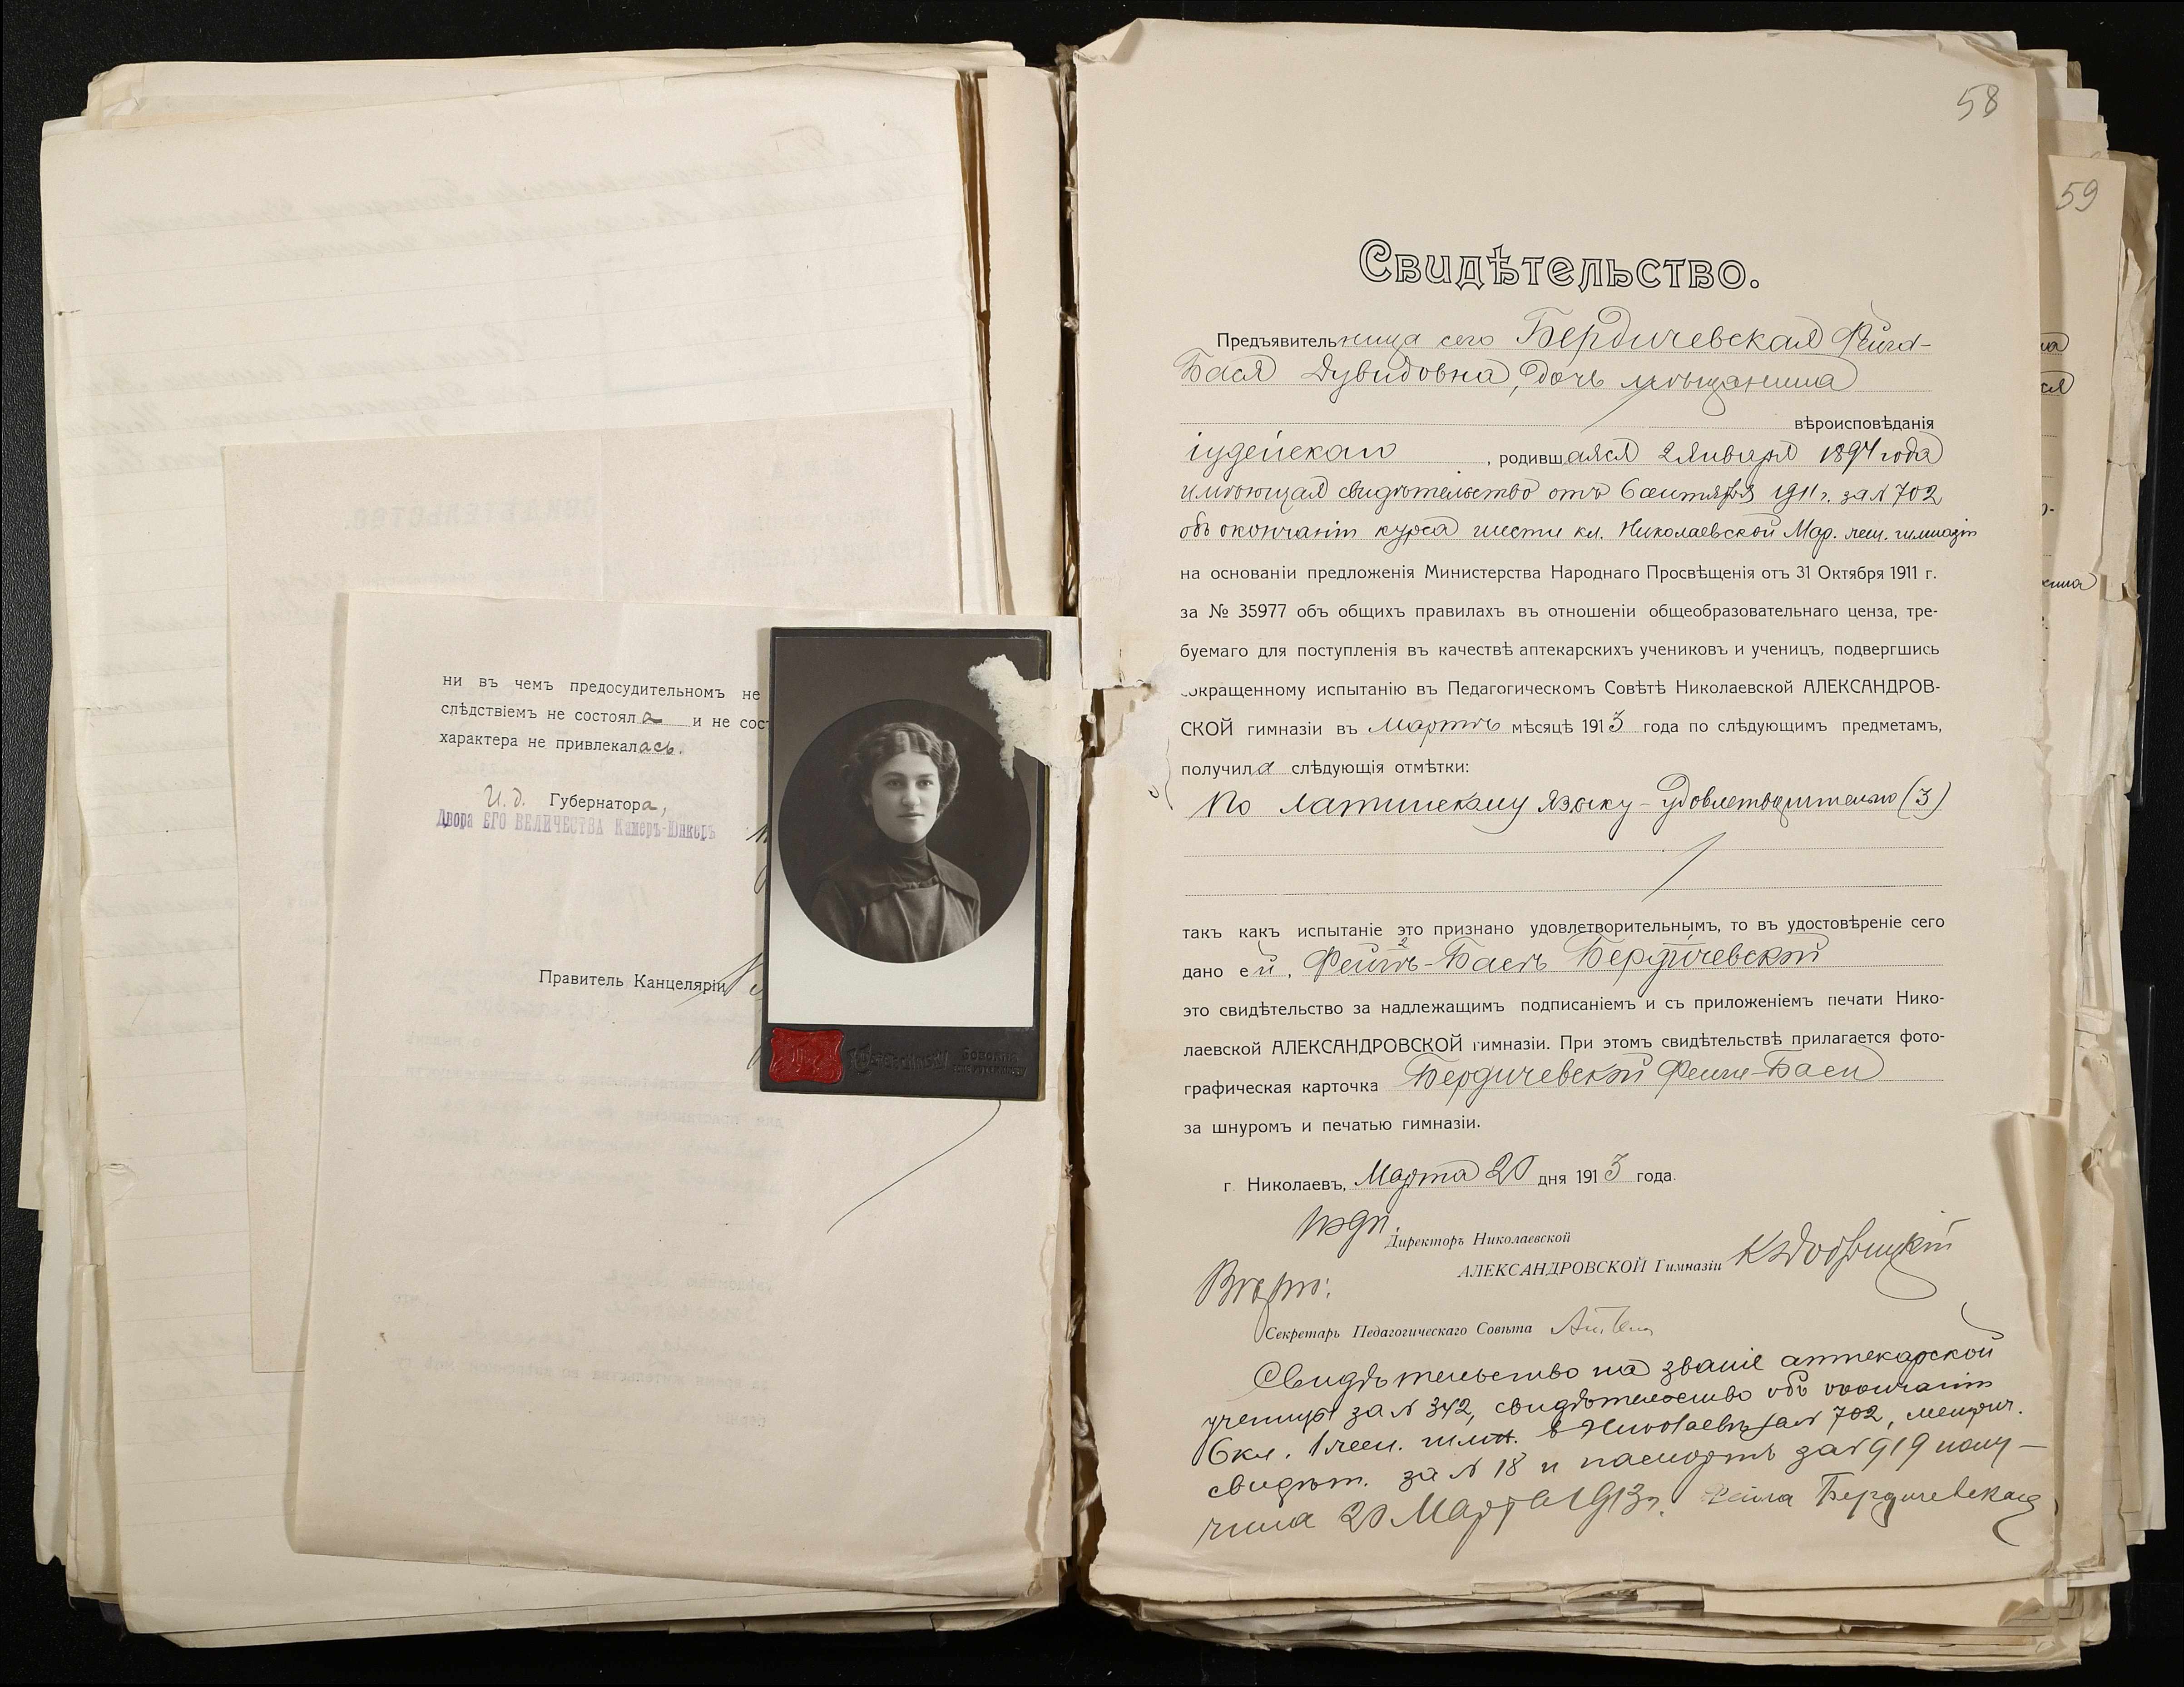 ни въ чемъ предосудительномъ не
слѣдствіемъ не состояла и не сос
характера не привлекалась.
И. д. Губернатора,
Двора ЕГО ВЕЛИЧЕСТВА Камеръ-Юнкеръ
Правитель Канцеляріи
58
59
Свидѣтельство.
Предъявительница сего Бердичевская Фейга-
Бася Дувидовна, дочь мѣщанина
вѣроисповѣданія
іудейскаго, родившаяся 2 Января 1894 года
имѣющая свидѣтельство отъ 6 сентября 1911 г. за № 702
объ окончаніи курса шести кл. Николаевской Мар. жен. гимназіи
на основаніи предложенія Министерства Народнаго Просвѣщенія отъ 31 Октября 1911 г.
за № 35977 объ общихъ правилахъ въ отношеніи общеобразовательнаго ценза, тре-
буемаго для поступленія въ качествѣ аптекарскихъ учениковъ и ученицъ, подвергшись
сокращенному испытанію въ Педагогическомъ Совѣтѣ Николаевской АЛЕКСАНДРОВ-
СКОЙ гимназіи въ мартѣ мѣсяцѣ 1913 года по слѣдующимъ предметамъ,
получила слѣдующія отмѣтки:
По латинскому языку - удовлетворительно (3)
такъ какъ испытаніе это признано удовлетворительнымъ, то въ удостовѣреніе сего
дано ей, Фейгѣ-Басѣ Бердичевской
это свидѣтельство за надлежащимъ подписаніемъ и съ приложеніемъ печати Нико-
лаевской АЛЕКСАНДРОВСКОЙ гимназіи. При этомъ свидѣтельствѣ прилагается фото-
графическая карточка Бердичевской Фейги-Баси
за шнуромъ и печатью гимназіи.
г. Николаевъ, Марта 20 дня 1913 года.
Директоръ Николаевской
АЛЕКСАНДРОВСКОЙ Гимназіи
Вѣрно:
Секретарь Педагогическаго Совѣта
Свидѣтельство на званіе аптекарской
ученицы за № 342, свидѣтельство объ окончаніи
6 кл. жен. гимн. в Николаевѣ за № 702, метрич.
свидѣт. за № 18 и паспортъ за № 919 полу-
чила 20 Марта 1913 г. Фейга Бердичевская